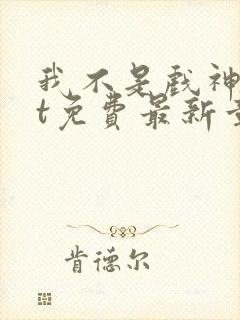 我不是戏神
t免费最新章
肯德尔